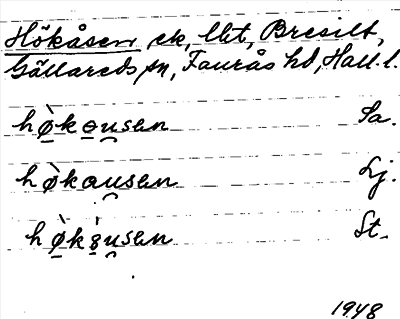 Hökåsen ek, lht, Bresilt,
Gällareds sn, Faurås hd, Hall. l.
hø̀kɵusen Sa.
hø̀kausen Lj.
hø̀kö́usen St.
1948